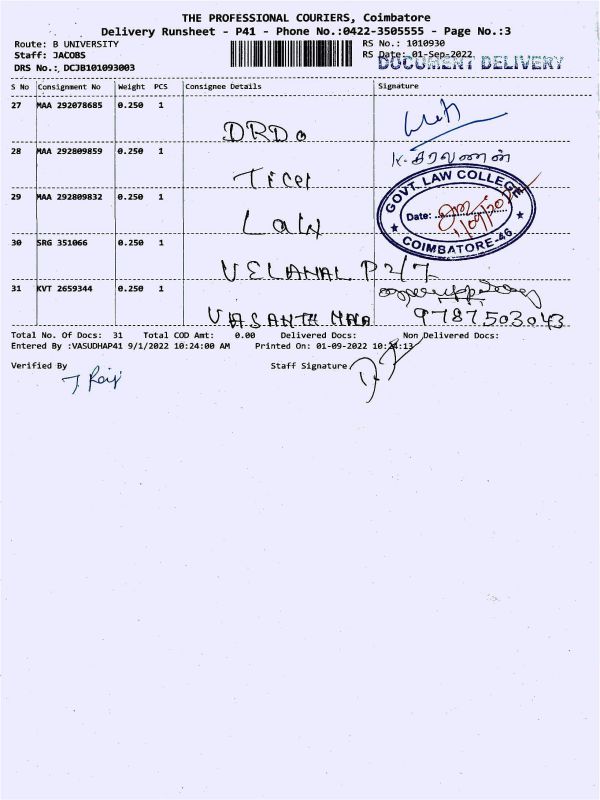 THE PROFESSIONAL COURIERS, Coimbatore
Delivery Runsheet - P41 - Phone No.:0422-3505555 - Page No.:3
Route: B UNIVERSITY RS No.: 1010930
Staff: JACOBS RS Date: 01-Sep-2022
DRS No.: DCJB101093003 DOCUMENT DELIVERY
S No Consignment No Weight PCS Consignee Details Signature
27 MAA 292078685 0.250 1
DRDO
28 MAA 292809859 0.250 1
K. சரவணன்
Ticel
29 MAA 292809832 0.250 1
GOVT. LAW COLLEGE
Date:
COIMBATORE-46
Law
30 SRG 351066 0.250 1
P 2/7
31 KVT 2659344 0.250 1
VASANTH MALA 9787503043
Total No. Of Docs: 31 Total COD Amt: 0.00 Delivered Docs: Non Delivered Docs:
Entered By :VASUDHAP41 9/1/2022 10:24:00 AM Printed On: 01-09-2022 10:24:13
Verified By Staff Signature